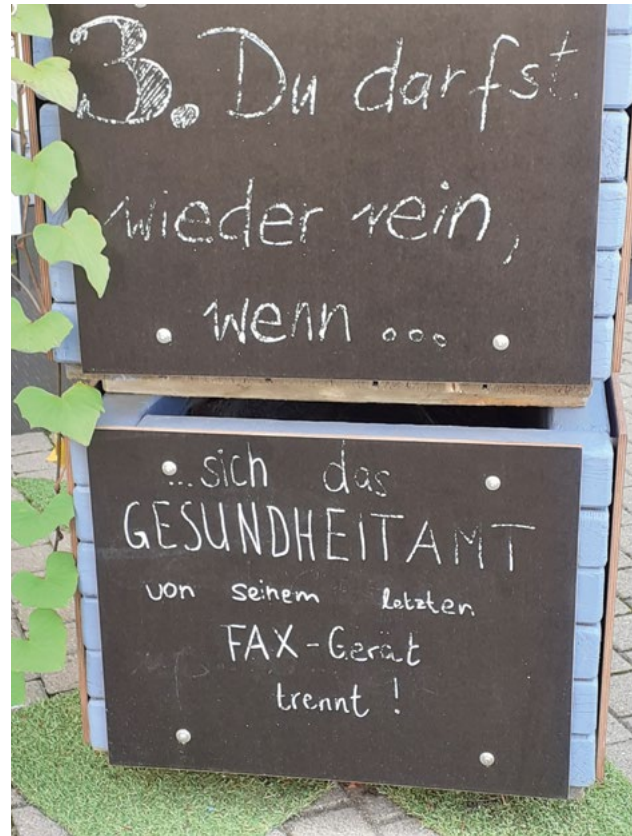 3. Du darfst
wieder rein,
wenn ...
...sich das
GESUNDHEITAMT
von seinem letzten
FAX-Gerät
trennt !